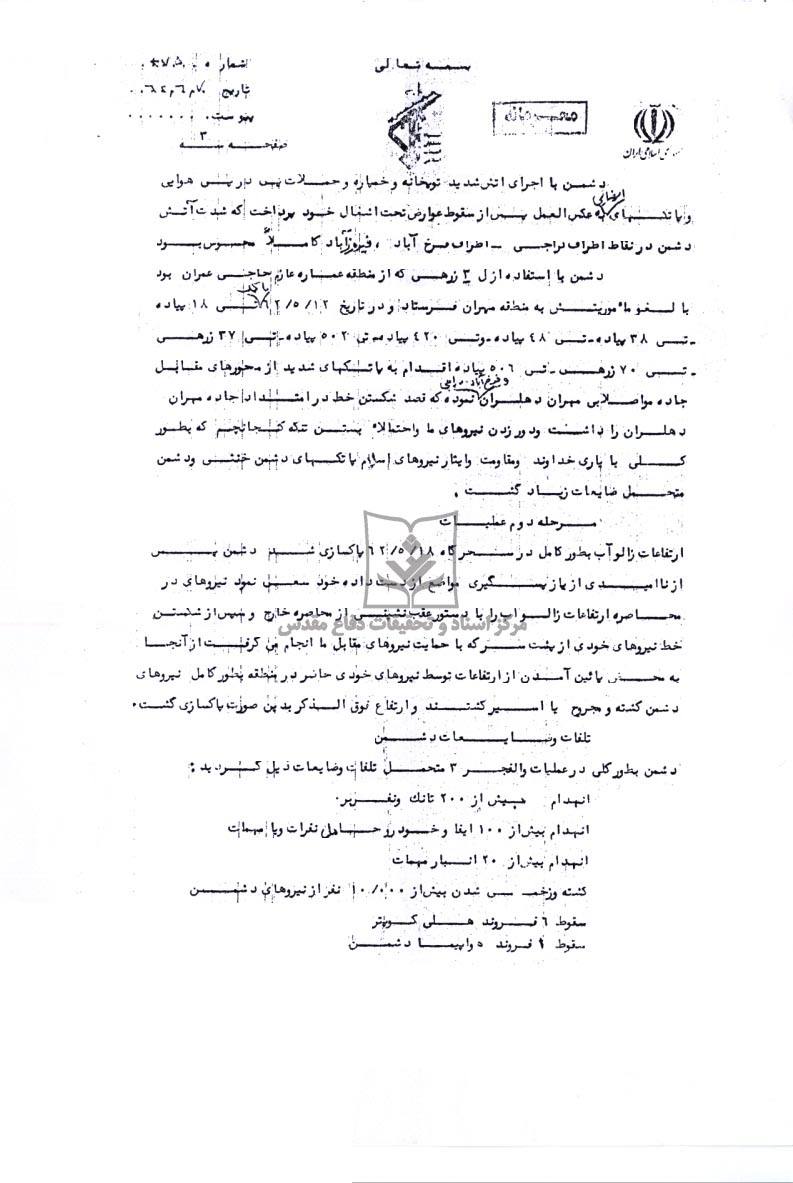 بسمه تعالی
شماره
تاریخ
پیوست.
صفحه سه ۳
محرمانه
جمهوری اسلامی ایران
دشمن با اجرای اتش شدید توپخانه و خمپاره و حملات پی در پی هوایی
و پاتکهای ایذائی به عکس العمل پس از سقوط عوارض تحت اشغال خود پرداخت که شدت آتش
دشمن در نقاط اطراف دراجی - اطراف فرخ آباد ، فیروزآباد کاملاً محسوس بود
دشمن با استفاده از ل ۳ زرهی که از منطقه عماره عازم حاجی عمران بود
با لغو ماموریتش به منطقه مهران فرستاد و در تاریخ ۶۲/۵/۱۲ با کمک تی ۱۸ پیاده
- تی ۳۸ پیاده - تی ۴۸ پیاده - وتی ۴۲۰ پیاده - تی ۵۰۲ پیاده - تی ۳۷ زرهی
- تی ۷۰ زرهی - تی ۵۰۶ پیاده اقدام به پاتکهای شدید از محورهای مقابل
جاده مواصلاتی مهران دهلران و فرخ آباد دراجی نموده که قصد شکستن خط در امتداد جاده مهران
دهلران را داشت و دور زدن نیروهای ما واحتمالاً بستن تنگه کنجانچم که بطور
کلی با یاری خداوند ومقاومت وایثار نیروهای اسلام پاتکهای دشمن خنثی ودشمن
متحمل ضایعات زیاد گشت .
مرحله دوم عملیات
ارتفاعات زالوآب بطور کامل در سحرگاه ۶۲/۵/۱۸ پاکسازی شد دشمن پس
از ناامیدی از بازپسگیری مواضع از دست داده خود سعی نمود نیروهای در
محاصره ارتفاعات زالواب را با دستور عقب نشینی از محاصره خارج و پس از شکستن
خط نیروهای خودی از پشت سر که با حمایت نیروهای مقابل ما انجام می گرفت از آنجا
به محض پائین آمدن از ارتفاعات توسط نیروهای خودی حاضر در منطقه بطور کامل نیروهای
دشمن کشته و مجروح یا اسیر گشتند و ارتفاع فوق الذکر بدین صورت پاکسازی گشت.
تلفات وضایعات دشمن
دشمن بطور کلی در عملیات والفجر ۳ متحمل تلفات وضایعات ذیل گردید :
انهدام بیش از ۲۰۰ تانك ونفربر.
انهدام بیش از ۱۰۰ ایفا و خودرو حامل نفرات ویا مهمات
انهدام بیش از ۲۰ انبار مهمات
کشته وزخمی شدن بیش از ۱۰/۰۰۰ نفر از نیروهای دشمن
سقوط ۶ فروند هلی کوپتر
سقوط فروند هواپیما دشمن
مرکز اسناد و تحقیقات دفاع مقدس